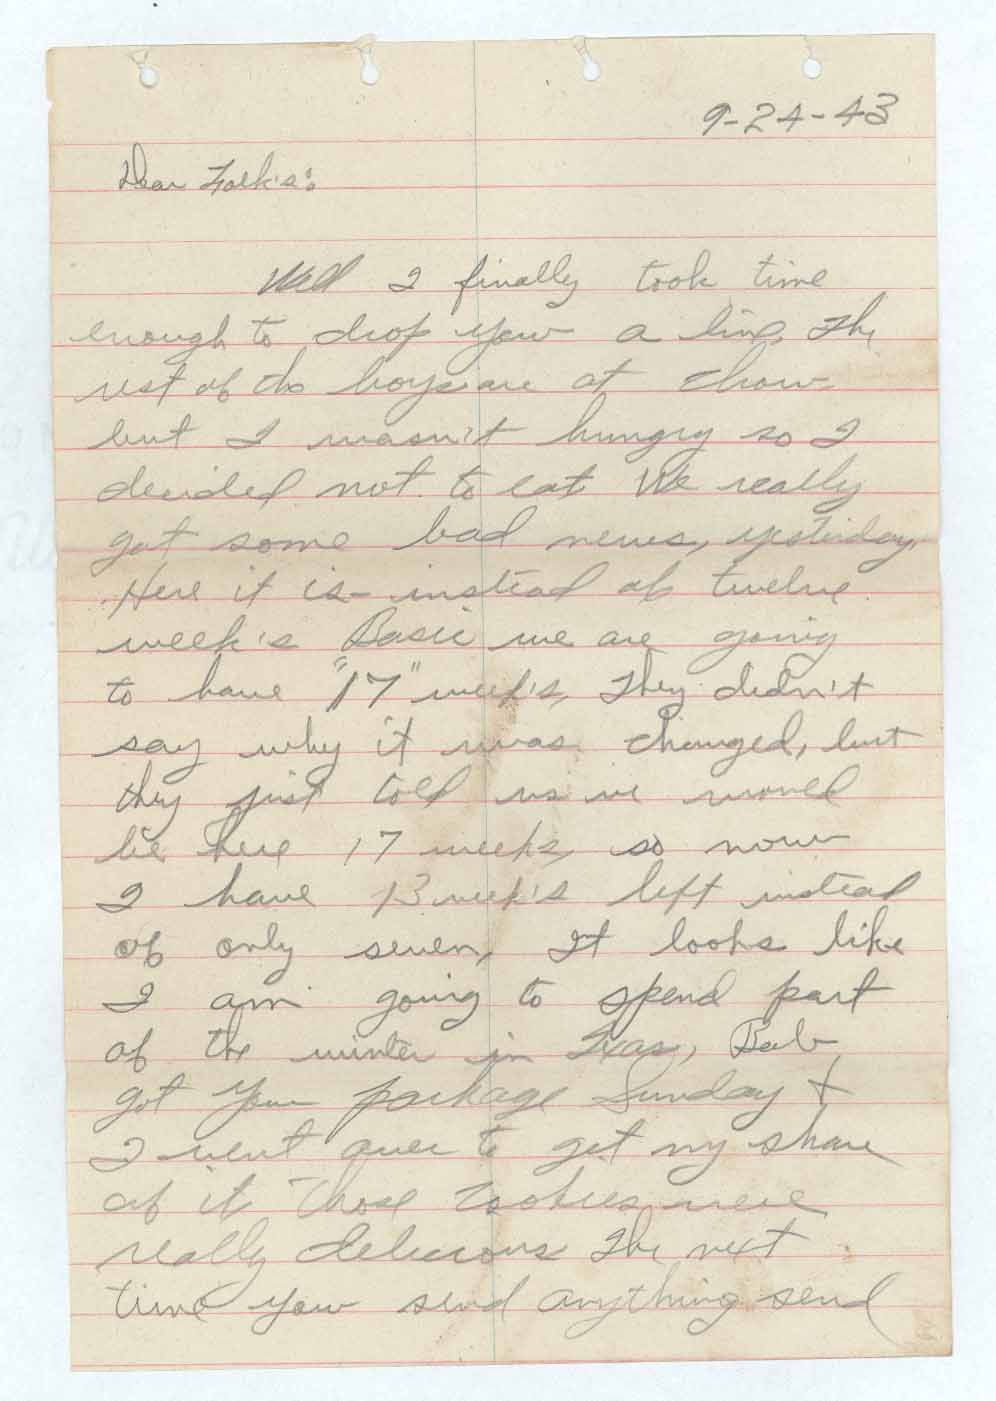 9-24-43
Dear Folk's:
Well I finally took time
enough to drop you a line, The
rest of the boys are at chow
but I wasn't hungry so I
decided not to eat We really
got some bad news, yesterday.
Here it is - instead of twelve
week's Basic we are going
to have "17" week's, They didn't
say why it was changed, but
they just told us we would
be here 17 weeks, so now
I have 13 week's left instead
of only seven, It looks like
I am going to spend part
of the winter in Texas, Bab
got your package Sunday +
I went over to get my share
of it Those cookies were
really delicious The next
time you send anything send